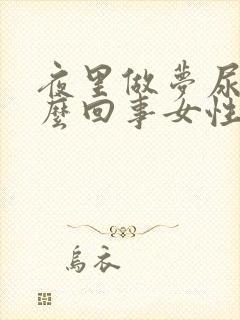 夜里做夢尿
麼回事女性
烏衣